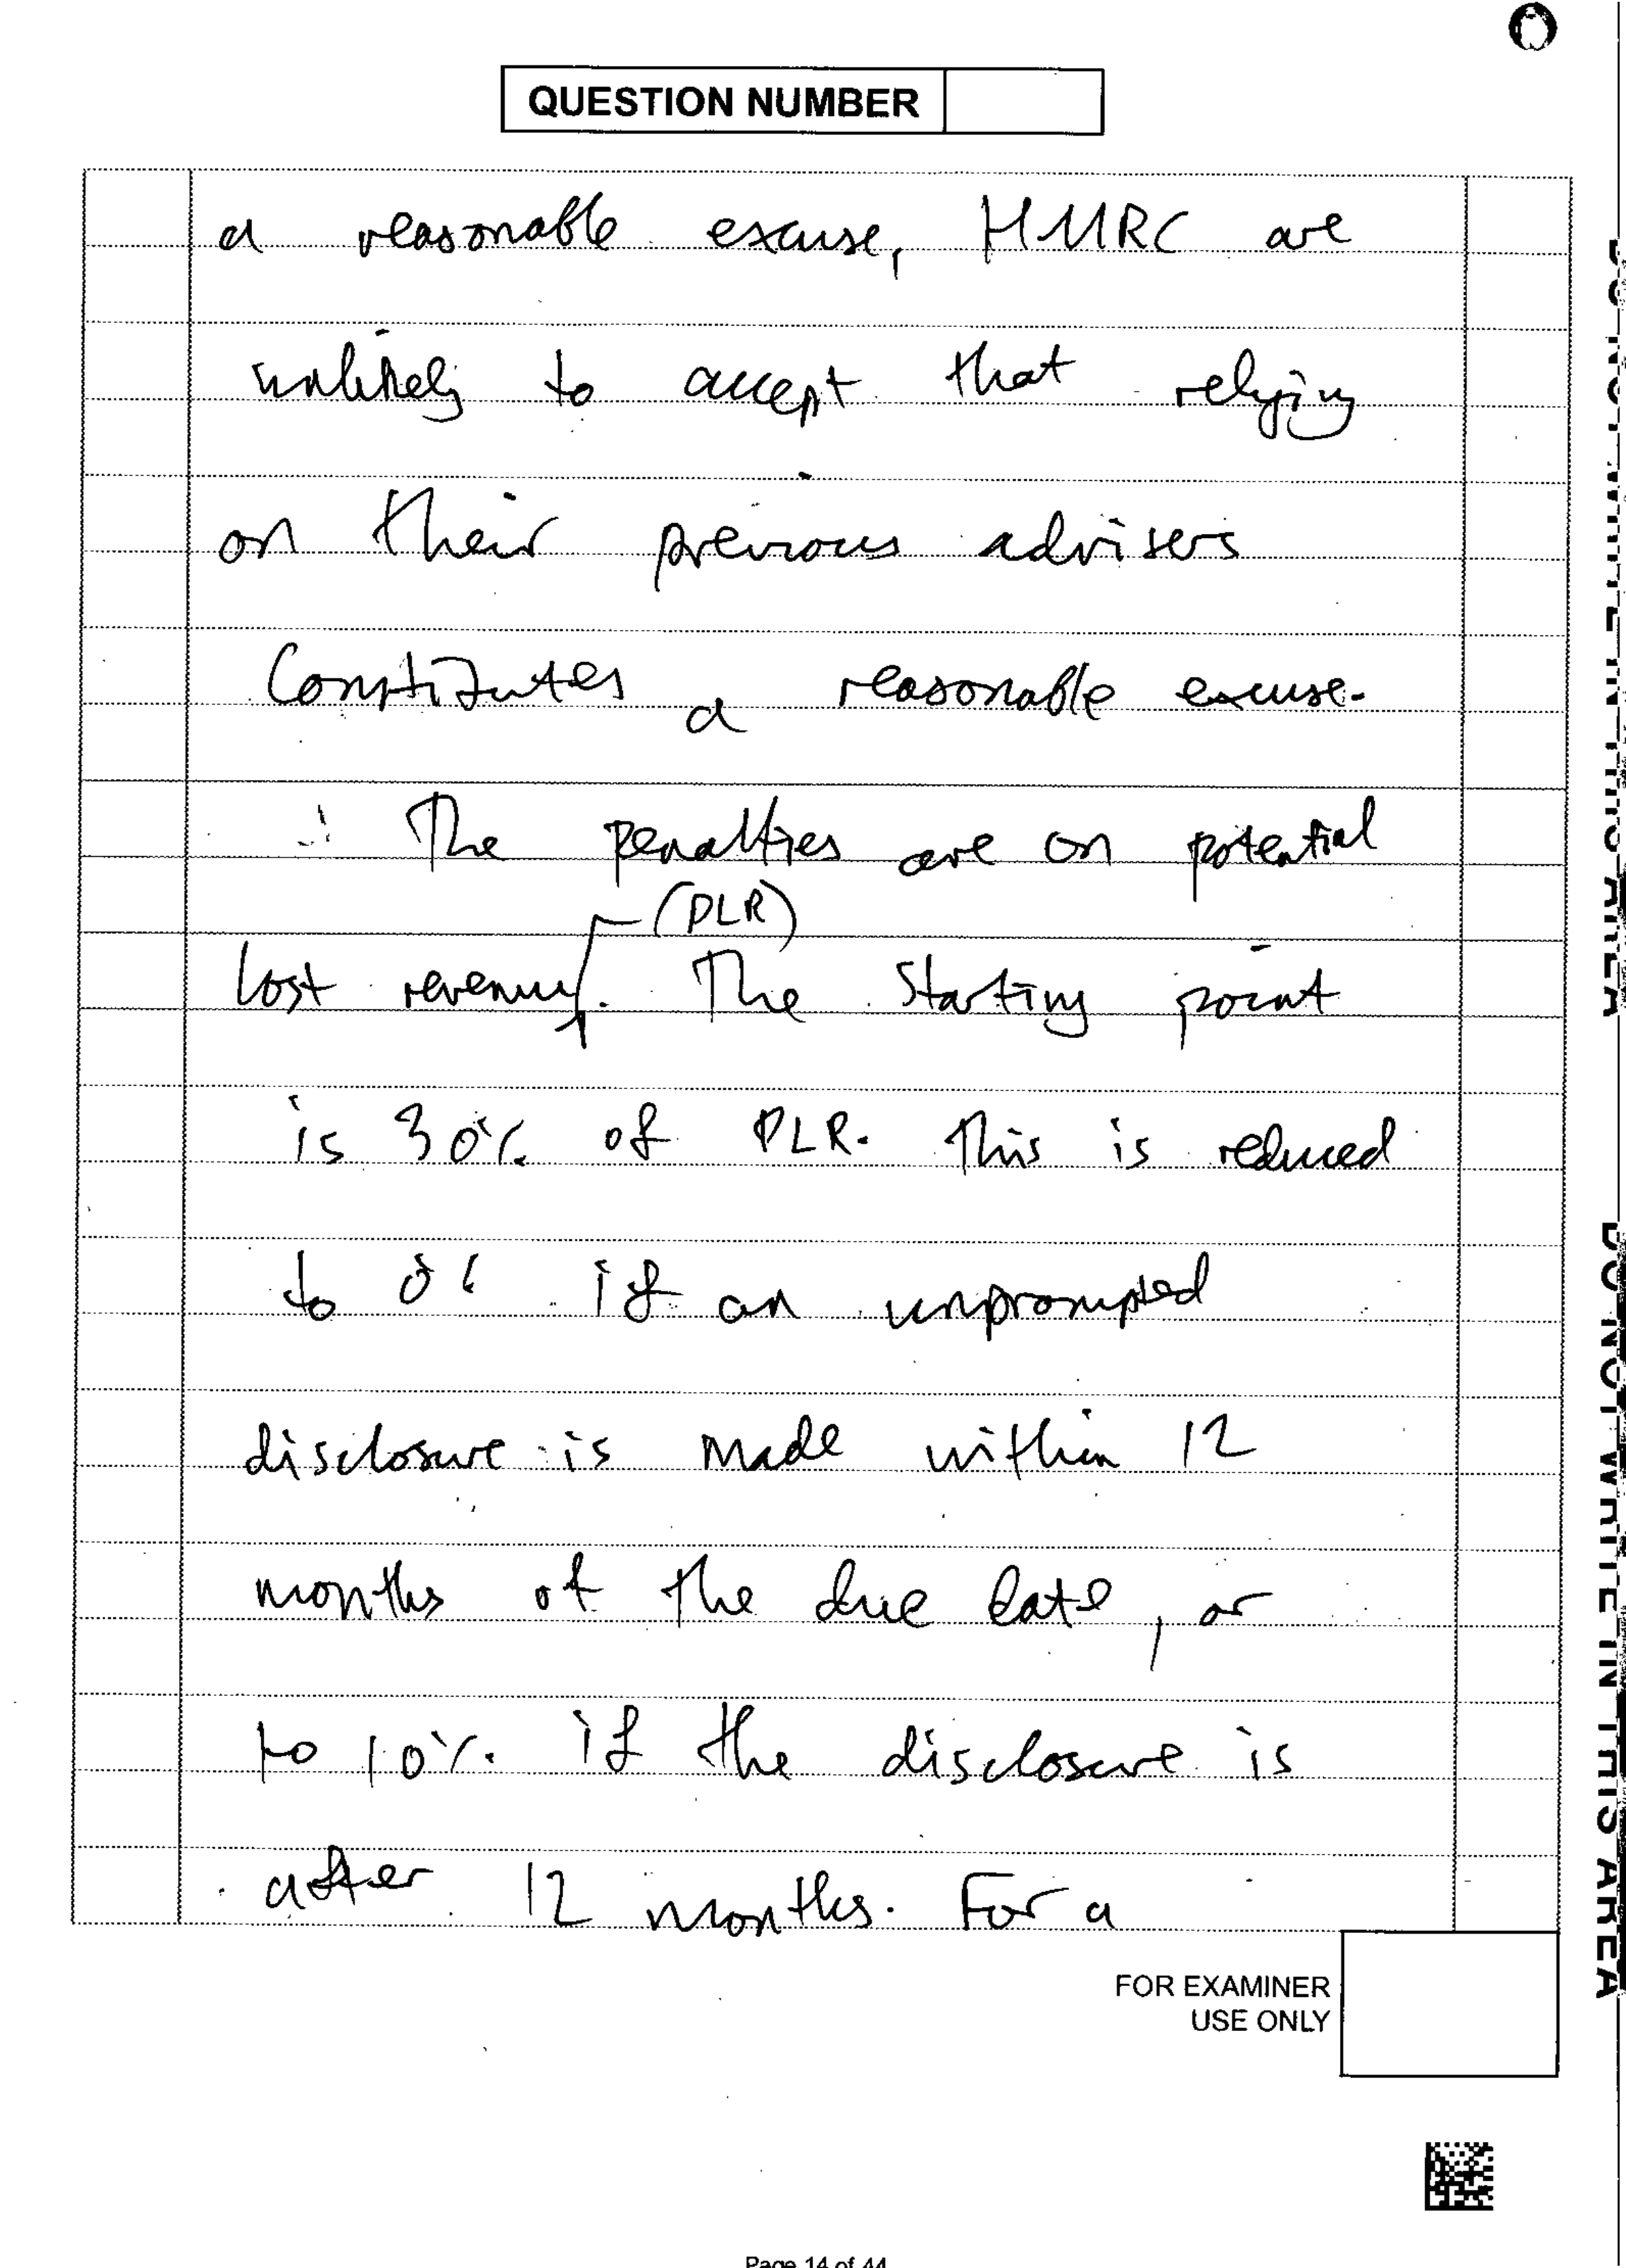 QUESTION NUMBER
a reasonable excuse, HMRC are
unlikely to accept that relying
on their previous advisers
constitutes a reasonable excuse.
The penalties are on potential
(PLR)
lost revenue. The starting point
is 30% of PLR. This is reduced
to 0% if an unprompted
disclosure is made within 12
months of the due date, or
to 10% if the disclosure is
after 12 months. For a
FOR EXAMINER
USE ONLY
Page 14 of 44
DO NOT WRITE IN THIS AREA
DO NOT WRITE IN THIS AREA